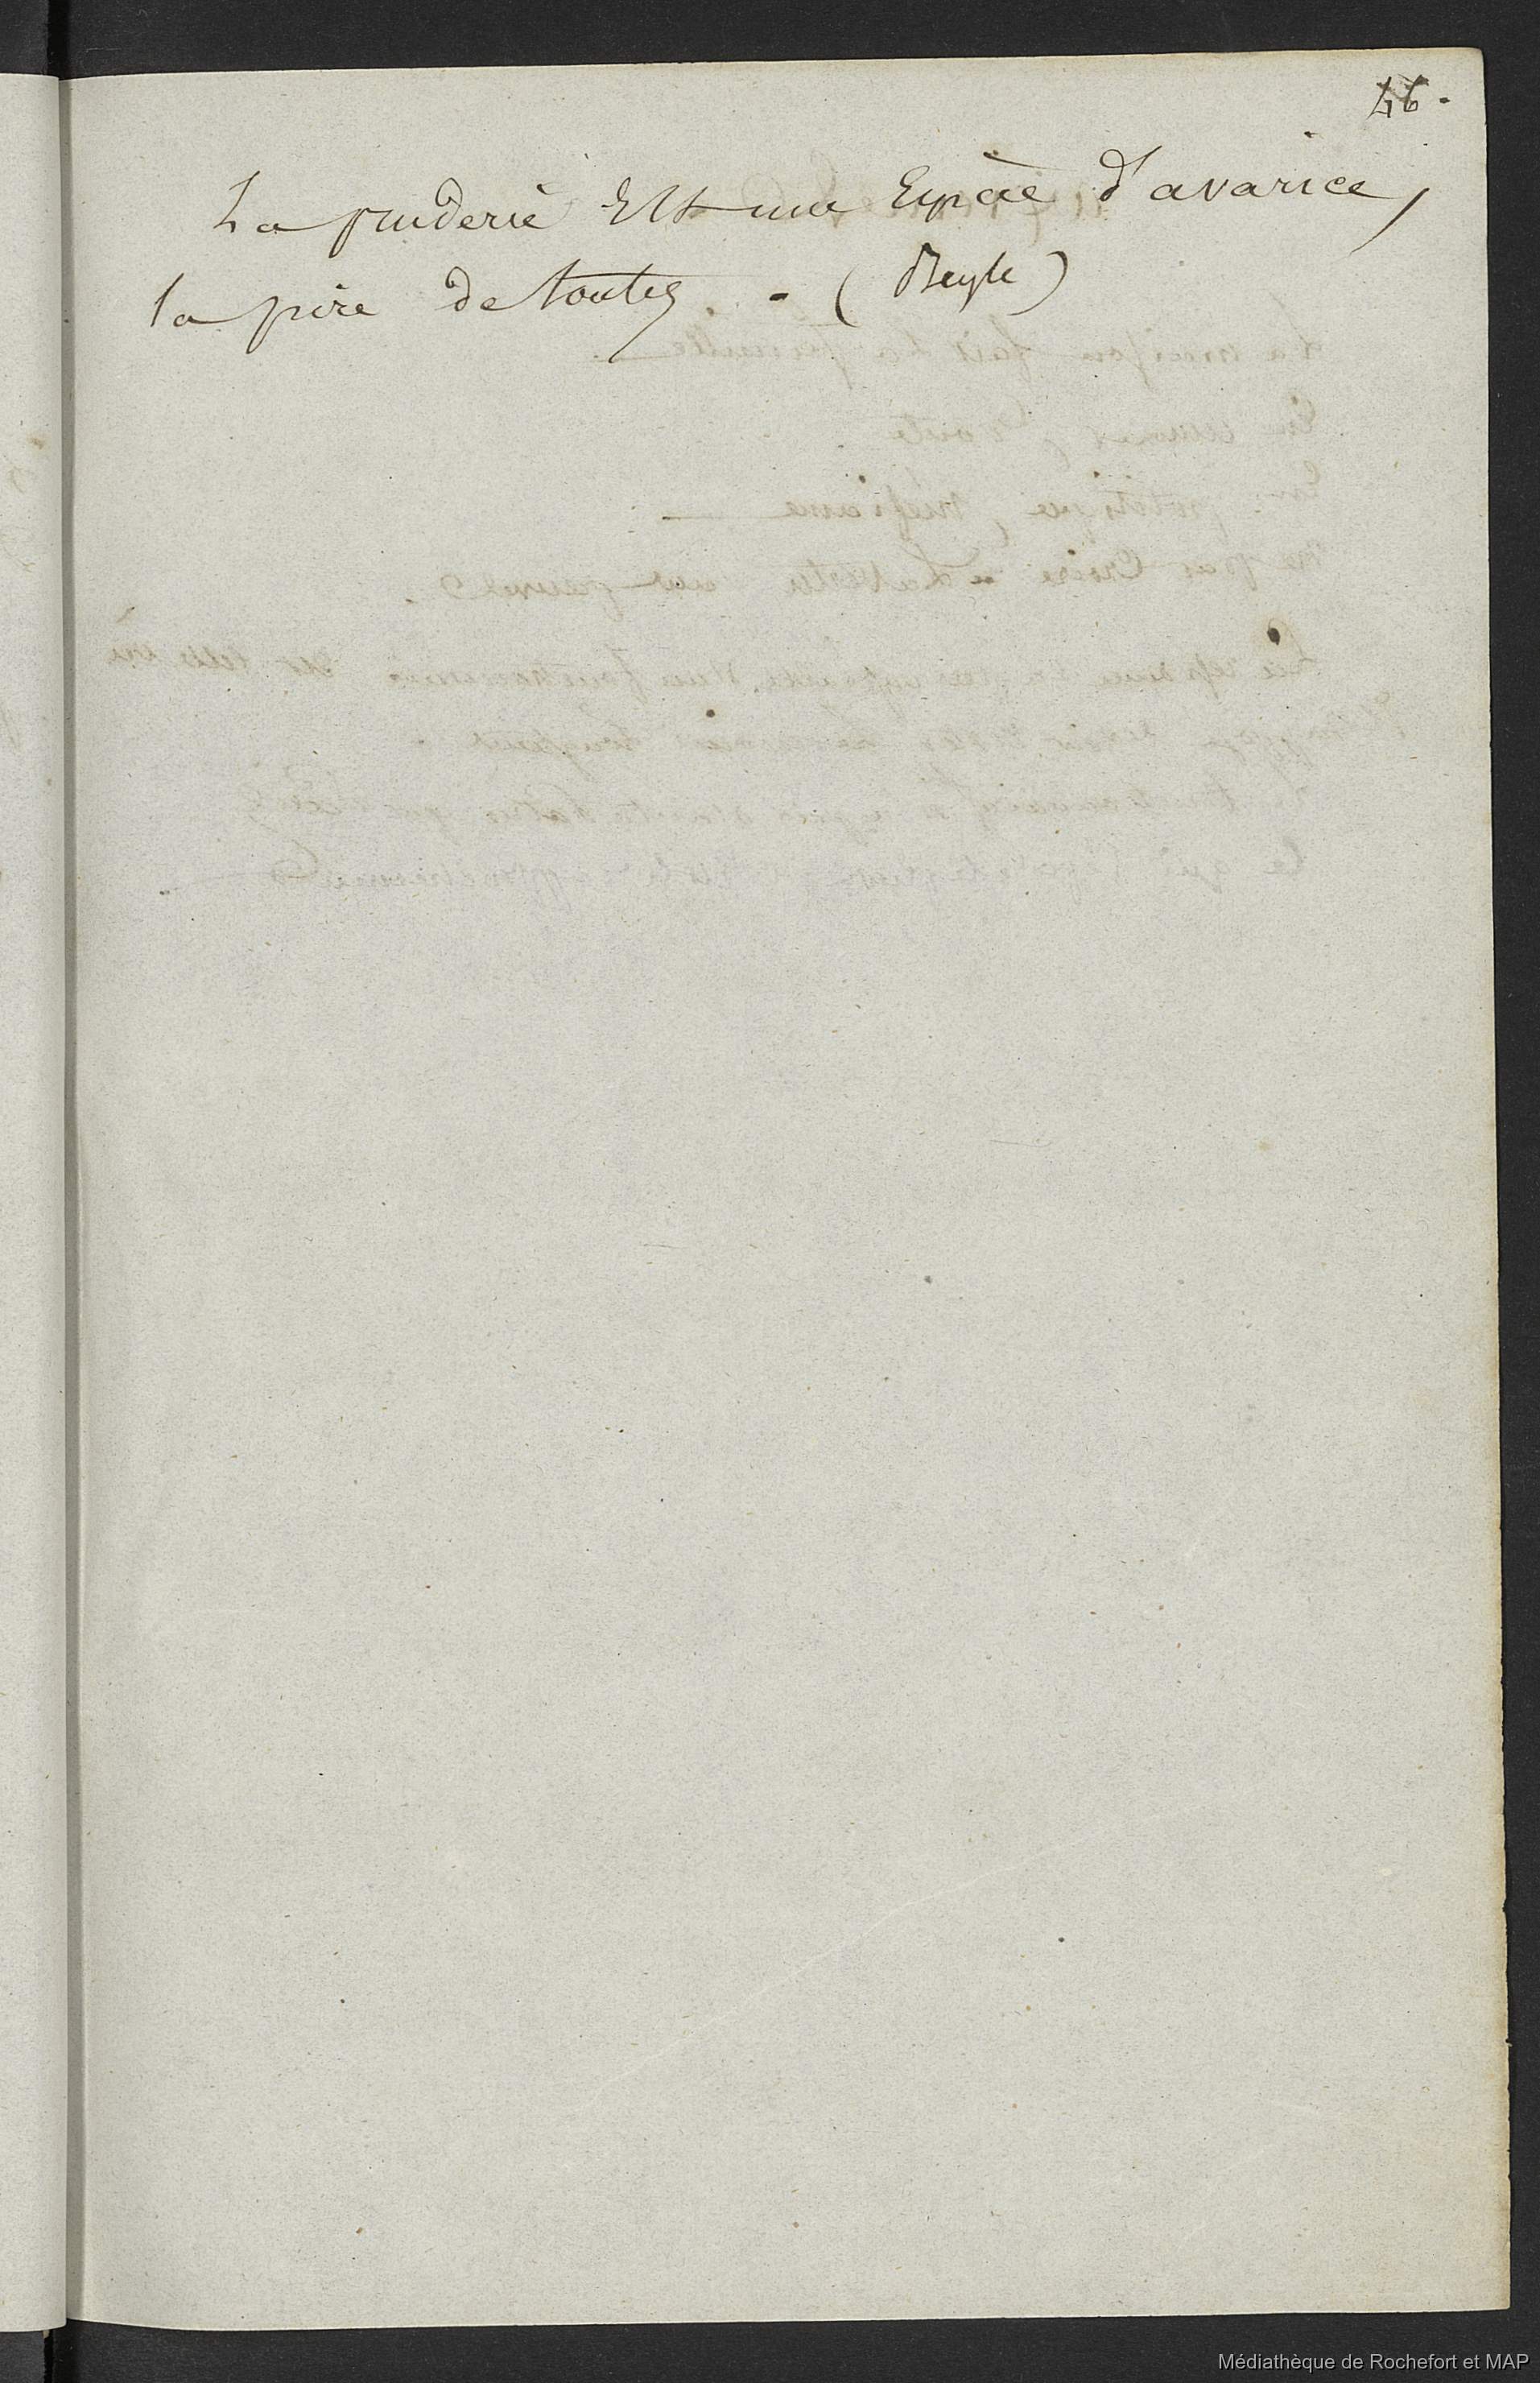 46.
La pruderie Est une Espèce d'avarice,
la pire de toutes. - (Beyle)
Médiathèque de Rochefort et MAP